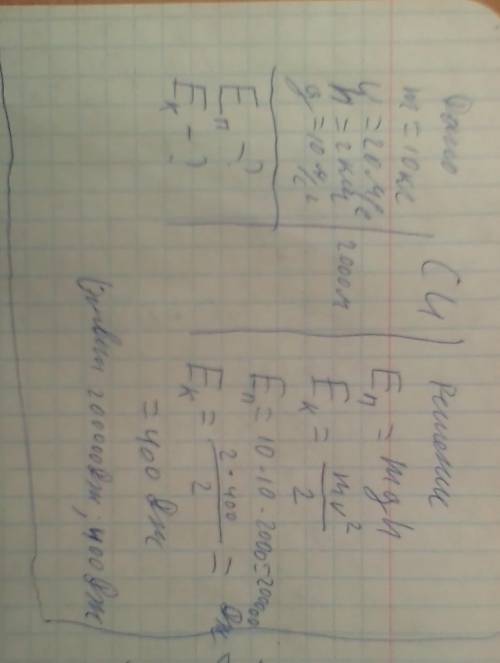 Дано
m = 10 кг
υ = 20 м/с
h = 2 км
g = 10 м/с²
Eп - ?
Eк - ?
СИ
2000м
Решение
Eп = mgh
Eк = mv²/2
Eп = 10·10·2000=200000 Дж
Eк = 2·400/2 =
= 400 Дж
Ответ 200000Дж, 400 Дж